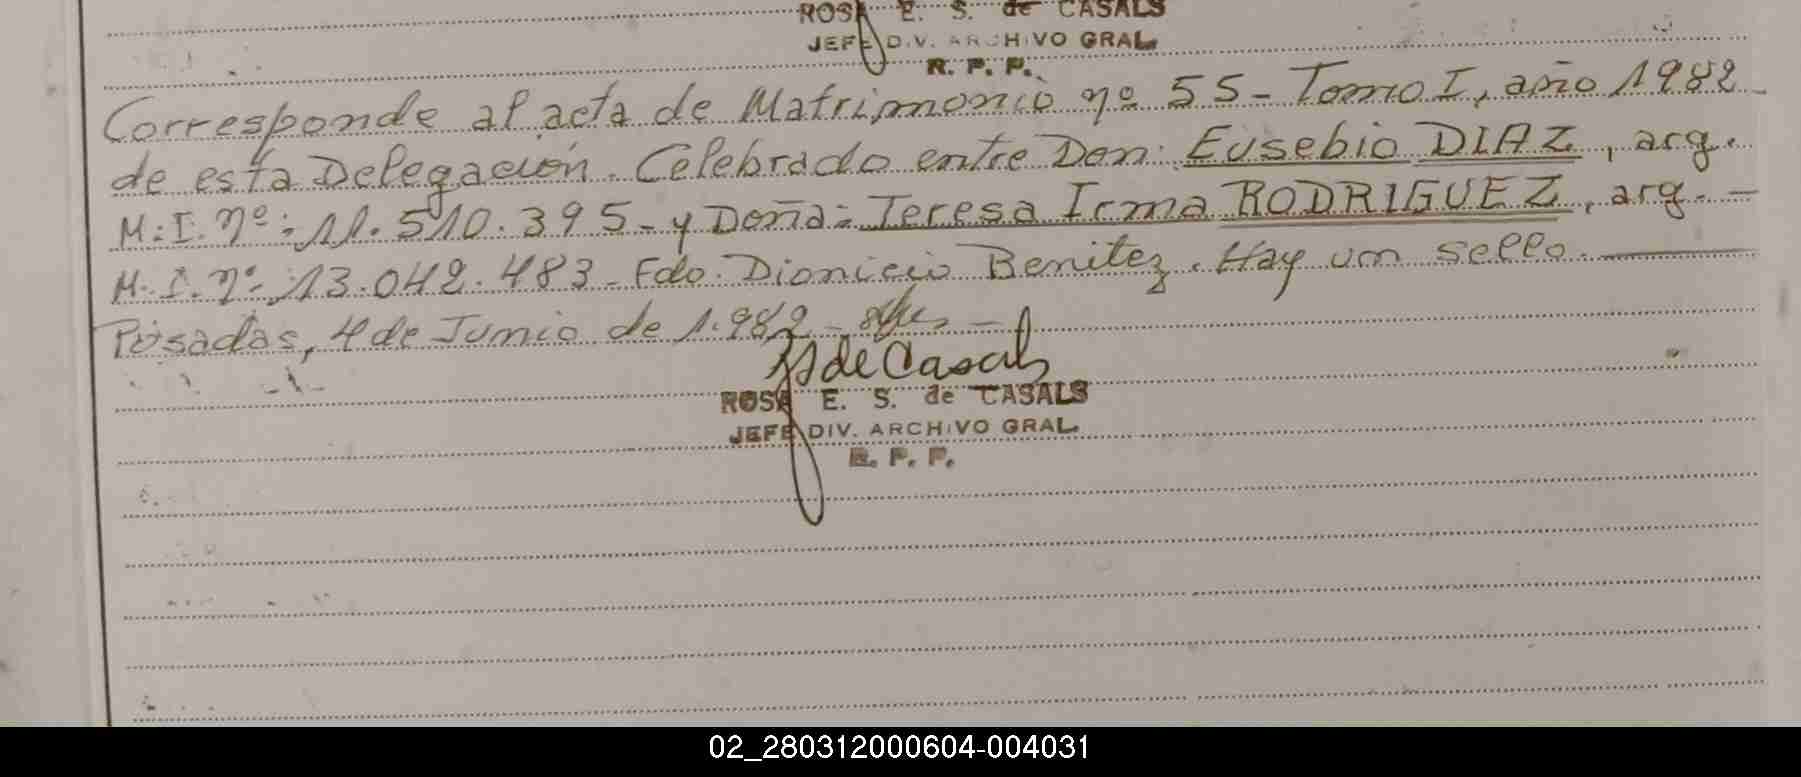 ROSA E. S. de CASALS
JEFE DIV. ARCHIVO GRAL.
R. P. P.
Corresponde al acta de Matrimonio nº 55 - Tomo I, año 1982 -
de esta Delegación. Celebrado entre Don: Eusebio DIAZ, arg.
M.I. Nº: 11.510.395 - y Doña: Teresa Irma RODRIGUEZ, arg. -
M.I. Nº: 13.042.483 - Fdo. Dionicio Benitez. Hay un sello.
Posadas, 4 de Junio de 1.982 -
de Casals
ROSA E. S. de CASALS
JEFE DIV. ARCHIVO GRAL.
R. P. P.
02_280312000604-004031